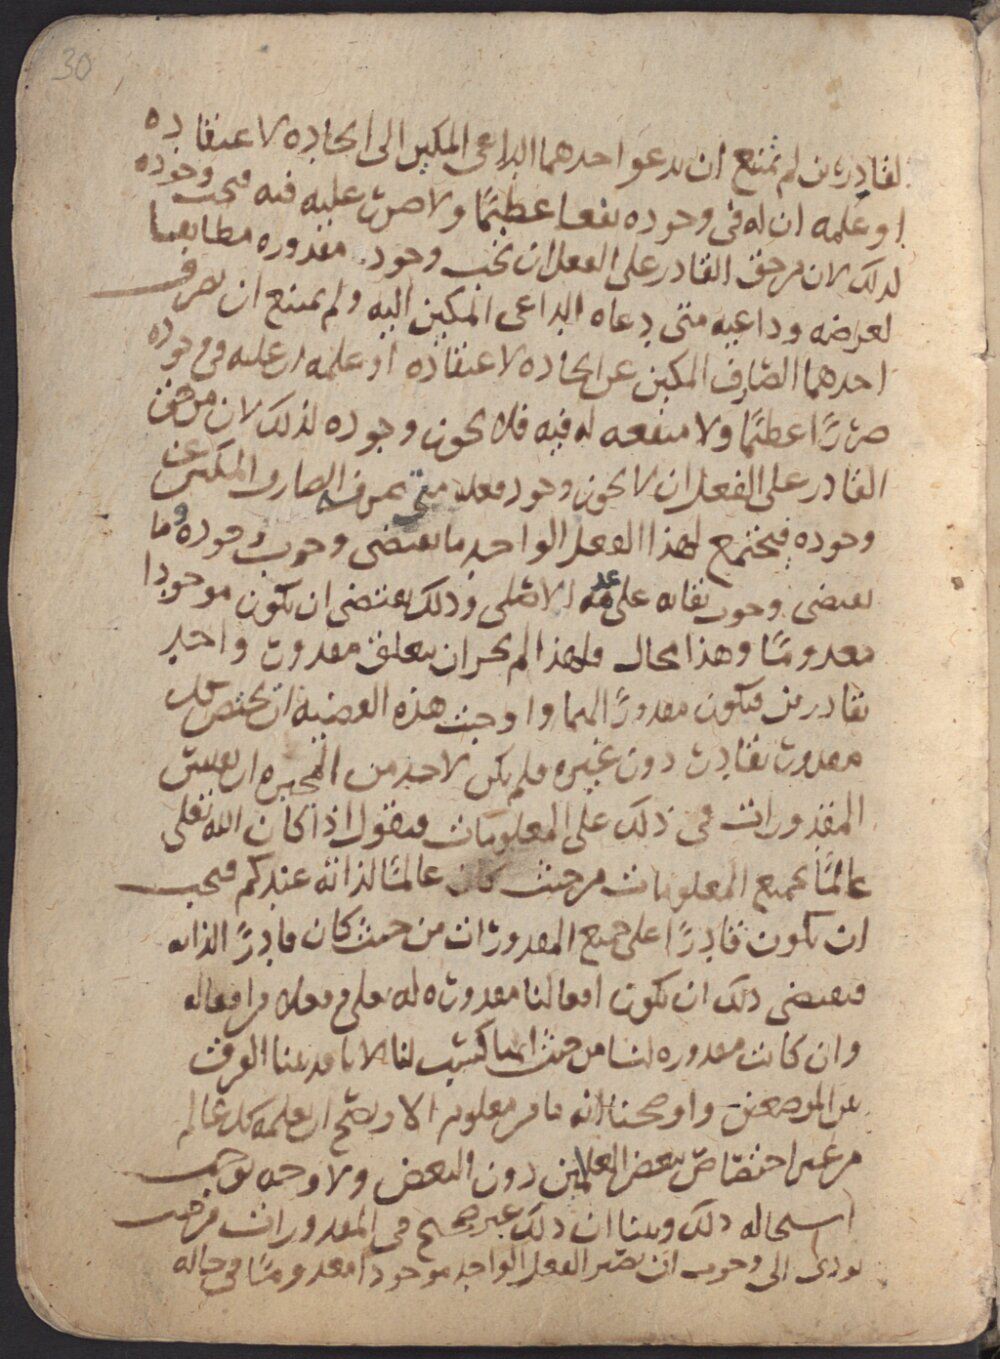 30
لقادرين لم يمتنع ان يدعو احدهما الداعى المكين الى ايجاده لاعتقاده
او علمه ان له فى وجوده نفعا عظيمًا ولا ضرر عليه فيه فيجب وجوده
لذلك لان من حق القادر على الفعل ان يجب وجود مقدوره مطابقا
لغرضه وداعيه متى دعاه الداعى المكين اليه ولم يمتنع ان يصرف
احدهما الصّارف المكين عن ايجاده لاعتقاده او علمه ان عليه فى وجوده
ضررًا عظيمًا ولا منفعه له فيه فلا يجوز وجوده لذلك لان من حق
القادر على الفعل ان لا يجوز وجود فعله متى صرفه الصارف المكين عن
وجوده فيجتمع لهذا الفعل الواحد ما يقتضى وجوب وجوده وما
يقتضى وجوب بقايه على عدمه الاصلى وذلك يقتضى ان يكون موجودا
معدومًا وهذا محال فلهذا لم يجز ان يتعلق مقدور واحد
بقادرين فيكون مقدورًا لهما واوجبت هذه القضيه ان يختص كل
مقدور بقادر دون غيره فلم يكن لاحد من المجبره ان يقيس
المقدورات فى ذلك على المعلومات فيقول اذا كان الله تعلى
عالمًا بجميع المعلومات من حيث كان عالمًا لذاته عندكم فيجب
ان يكون قادرًا على جميع المقدورات من حيث كان قادرًا لذاته
فيقتضى ذلك ان يكون افعالنا مقدوره له تعلى وفعلا من افعاله
وان كانت مقدوره لنا من حيث انها كسب لنا لانا قد بينا الفرق
بين الموضعين واوضحنا انه ما من معلوم الا ويصّح ان يعلمه كل عالم
من غير اختصاصّ بعض العالمين دون البعض ولا وجه يوجب
استحاله ذلك وبينا ان ذلك غير صحيح فى المقدورات من حيث
يودى الى وجوب ان يصير الفعل الواحد موجودا معدومًا فى حاله